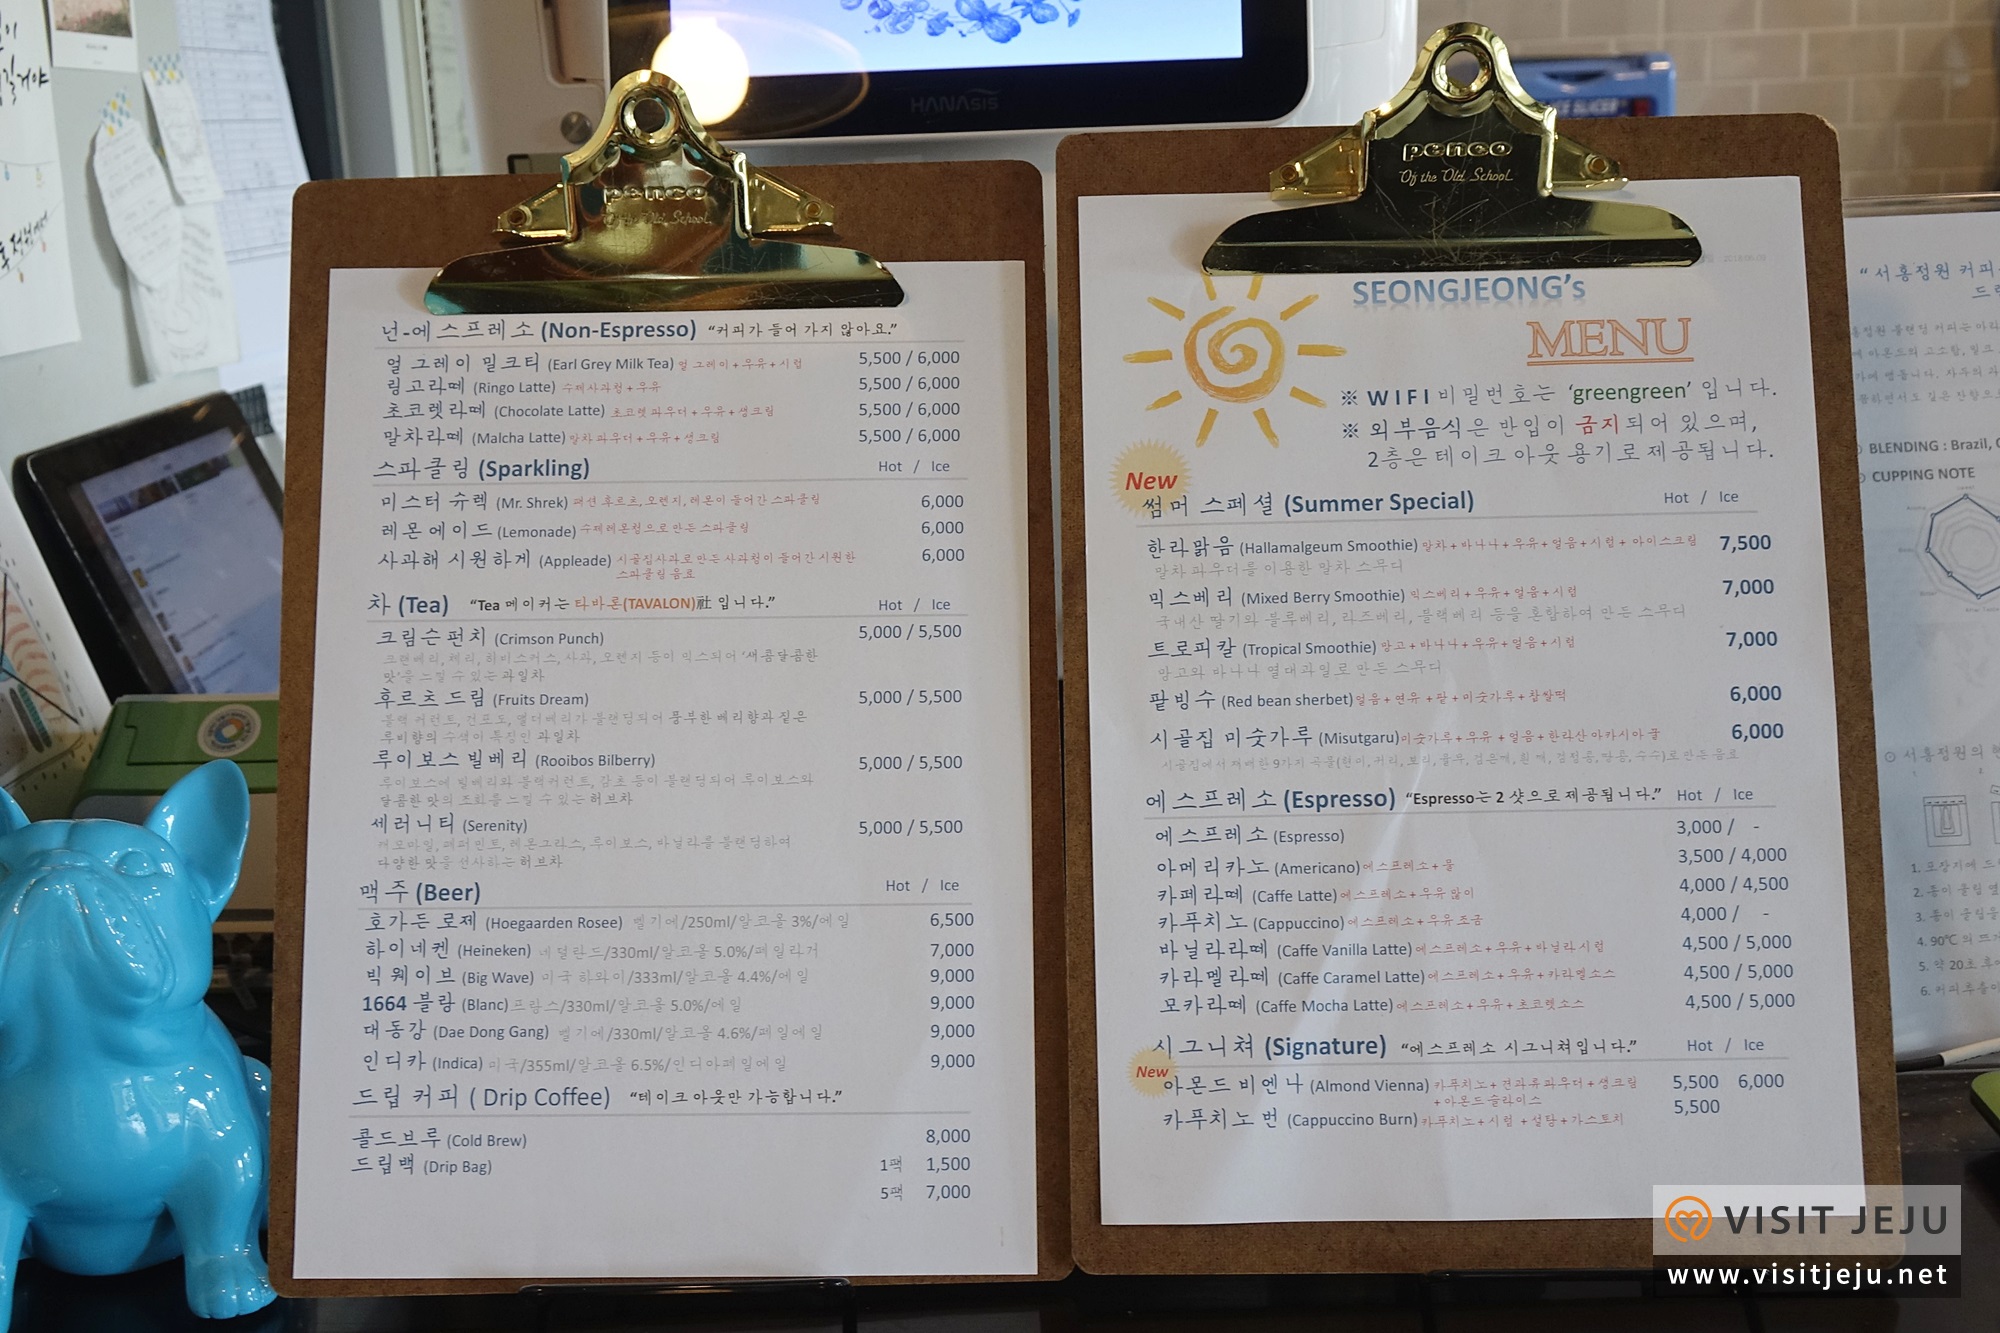 HANAsis
penco
Of the Old School.
넌-에스프레소 (Non-Espresso) “커피가 들어 가지 않아요.”
얼 그레이 밀크티 (Earl Grey Milk Tea) 얼 그레이 + 우유 + 시럽 5,500 / 6,000
링고라떼 (Ringo Latte) 수제사과청 + 우유 5,500 / 6,000
초코렛라떼 (Chocolate Latte) 초코렛 파우더 + 우유 + 생크림 5,500 / 6,000
말차라떼 (Malcha Latte) 말차 파우더 + 우유 + 생크림 5,500 / 6,000
스파클링 (Sparkling) Hot / Ice
미스터 슈렉 (Mr. Shrek) 패션 후르츠, 오렌지, 레몬이 들어간 스파클링 6,000
레몬에이드 (Lemonade) 수제레몬청으로 만든 스파클링 6,000
사과해 시원하게 (Appleade) 시골집사과로 만든 사과청이 들어간 시원한 6,000
스파클링 음료
차 (Tea) “Tea 메이커는 타바론(TAVALON)社 입니다.” Hot / Ice
크림슨펀치 (Crimson Punch) 5,000 / 5,500
크랜베리, 체리, 히비스커스, 사과, 오렌지 등이 믹스되어 ‘새콤달콤한
맛’을 느낄 수 있는 과일차
후르츠 드림 (Fruits Dream) 5,000 / 5,500
블랙 커런트, 건포도, 엘더베리가 블랜딩되어 풍부한 베리향과 짙은
루비향의 수색이 특징인 과일차
루이보스 빌베리 (Rooibos Bilberry) 5,000 / 5,500
루이보스에 빌베리와 블랙커런트, 감초 등이 블랜딩되어 루이보스와
달콤한 맛의 조화를 느낄 수 있는 허브차
세러니티 (Serenity) 5,000 / 5,500
캐모마일, 페퍼민트, 레몬그라스, 루이보스, 바닐라를 블랜딩하여
다양한 맛을 선사하는 허브차
맥주 (Beer) Hot / Ice
호가든 로제 (Hoegaarden Rosee) 벨기에/250ml/알코올 3%/에일 6,500
하이네켄 (Heineken) 네덜란드/330ml/알코올 5.0%/페일라거 7,000
빅 웨이브 (Big Wave) 미국 하와이/333ml/알코올 4.4%/에일 9,000
1664 블랑 (Blanc) 프랑스/330ml/알코올 5.0%/에일 9,000
대동강 (Dae Dong Gang) 벨기에/330ml/알코올 4.6%/페일에일 9,000
인디카 (Indica) 미국/355ml/알코올 6.5%/인디아페일에일 9,000
드립 커피 ( Drip Coffee) “테이크 아웃만 가능합니다.”
콜드브루 (Cold Brew) 8,000
드립백 (Drip Bag) 1팩 1,500
5팩 7,000
penco
Of the Old School.
SEONGJEONG's
MENU
※ WIFI 비밀번호는 ‘greengreen’ 입니다.
※ 외부음식은 반입이 금지되어 있으며,
2층은 테이크 아웃 용기로 제공됩니다.
New
썸머 스페셜 (Summer Special) Hot / Ice
한라맑음 (Hallamalgeum Smoothie) 말차 + 바나나 + 우유 + 얼음 + 시럽 + 아이스크림 7,500
말차 파우더를 이용한 말차 스무디
믹스베리 (Mixed Berry Smoothie) 믹스베리 + 우유 + 얼음 + 시럽 7,000
국내산 딸기와 블루베리, 라즈베리, 블랙베리 등을 혼합하여 만든 스무디
트로피칼 (Tropical Smoothie) 망고 + 바나나 + 우유 + 얼음 + 시럽 7,000
망고와 바나나 열대과일로 만든 스무디
팥빙수 (Red bean sherbet) 얼음 + 연유 + 팥 + 미숫가루 + 찹쌀떡 6,000
시골집 미숫가루 (Misutgaru) 미숫가루 + 우유 + 얼음 + 한라산 아카시아 꿀 6,000
시골집에서 재배한 9가지 곡물(현미, 귀리, 보리, 율무, 검은깨, 흰 깨, 검정콩, 땅콩, 수수)로 만든 음료
에스프레소 (Espresso) “Espresso는 2 샷으로 제공됩니다.” Hot / Ice
에스프레소 (Espresso) 3,000 / -
아메리카노 (Americano) 에스프레소 + 물 3,500 / 4,000
카페라떼 (Caffe Latte) 에스프레소 + 우유 많이 4,000 / 4,500
카푸치노 (Cappuccino) 에스프레소 + 우유 조금 4,000 / -
바닐라라떼 (Caffe Vanilla Latte) 에스프레소 + 우유 + 바닐라 시럽 4,500 / 5,000
카라멜라떼 (Caffe Caramel Latte) 에스프레소 + 우유 + 카라멜 소스 4,500 / 5,000
모카라떼 (Caffe Mocha Latte) 에스프레소 + 우유 + 초코렛소스 4,500 / 5,000
시그니쳐 (Signature) “에스프레소 시그니쳐입니다.” Hot / Ice
New
아몬드 비엔나 (Almond Vienna) 카푸치노 + 견과류파우더 + 생크림 5,500 6,000
+ 아몬드슬라이스
카푸치노 번 (Cappuccino Burn) 카푸치노 + 시럽 + 설탕 + 가스토치 5,500
“ 서홍정원 커피
BLENDING : Brazil,
CUPPING NOTE
서홍정원의
VISIT JEJU
www.visitjeju.net